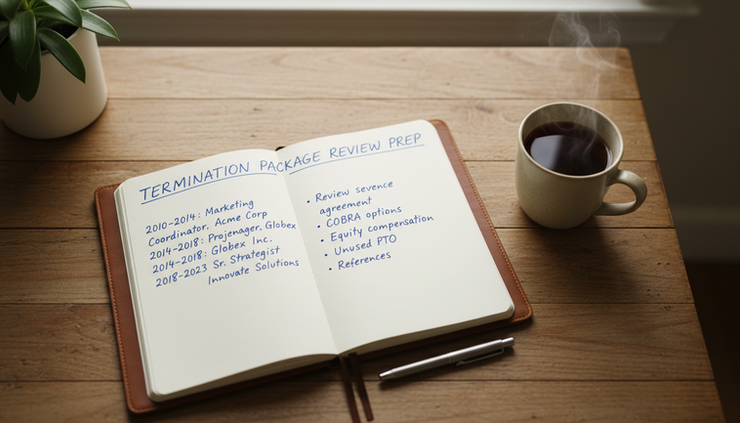 TERMINATION PACKAGE REVIEW PREP
2010-2014: Marketing
Coordinator, Acme Corp
2014-2018: Projenager, Globex
2014-2018: Globex Inc.
2018-2023 Sr. Strategist
Innovate Solutions
• Review sevence
agreement
• COBRA options
• Equity compensation
• Unused PTO
• References